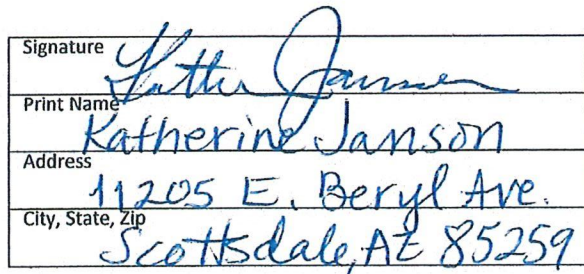 Signature
Print Name
Katherine Janson
Address
11205 E. Beryl Ave.
City, State, Zip
Scottsdale, AZ 85259